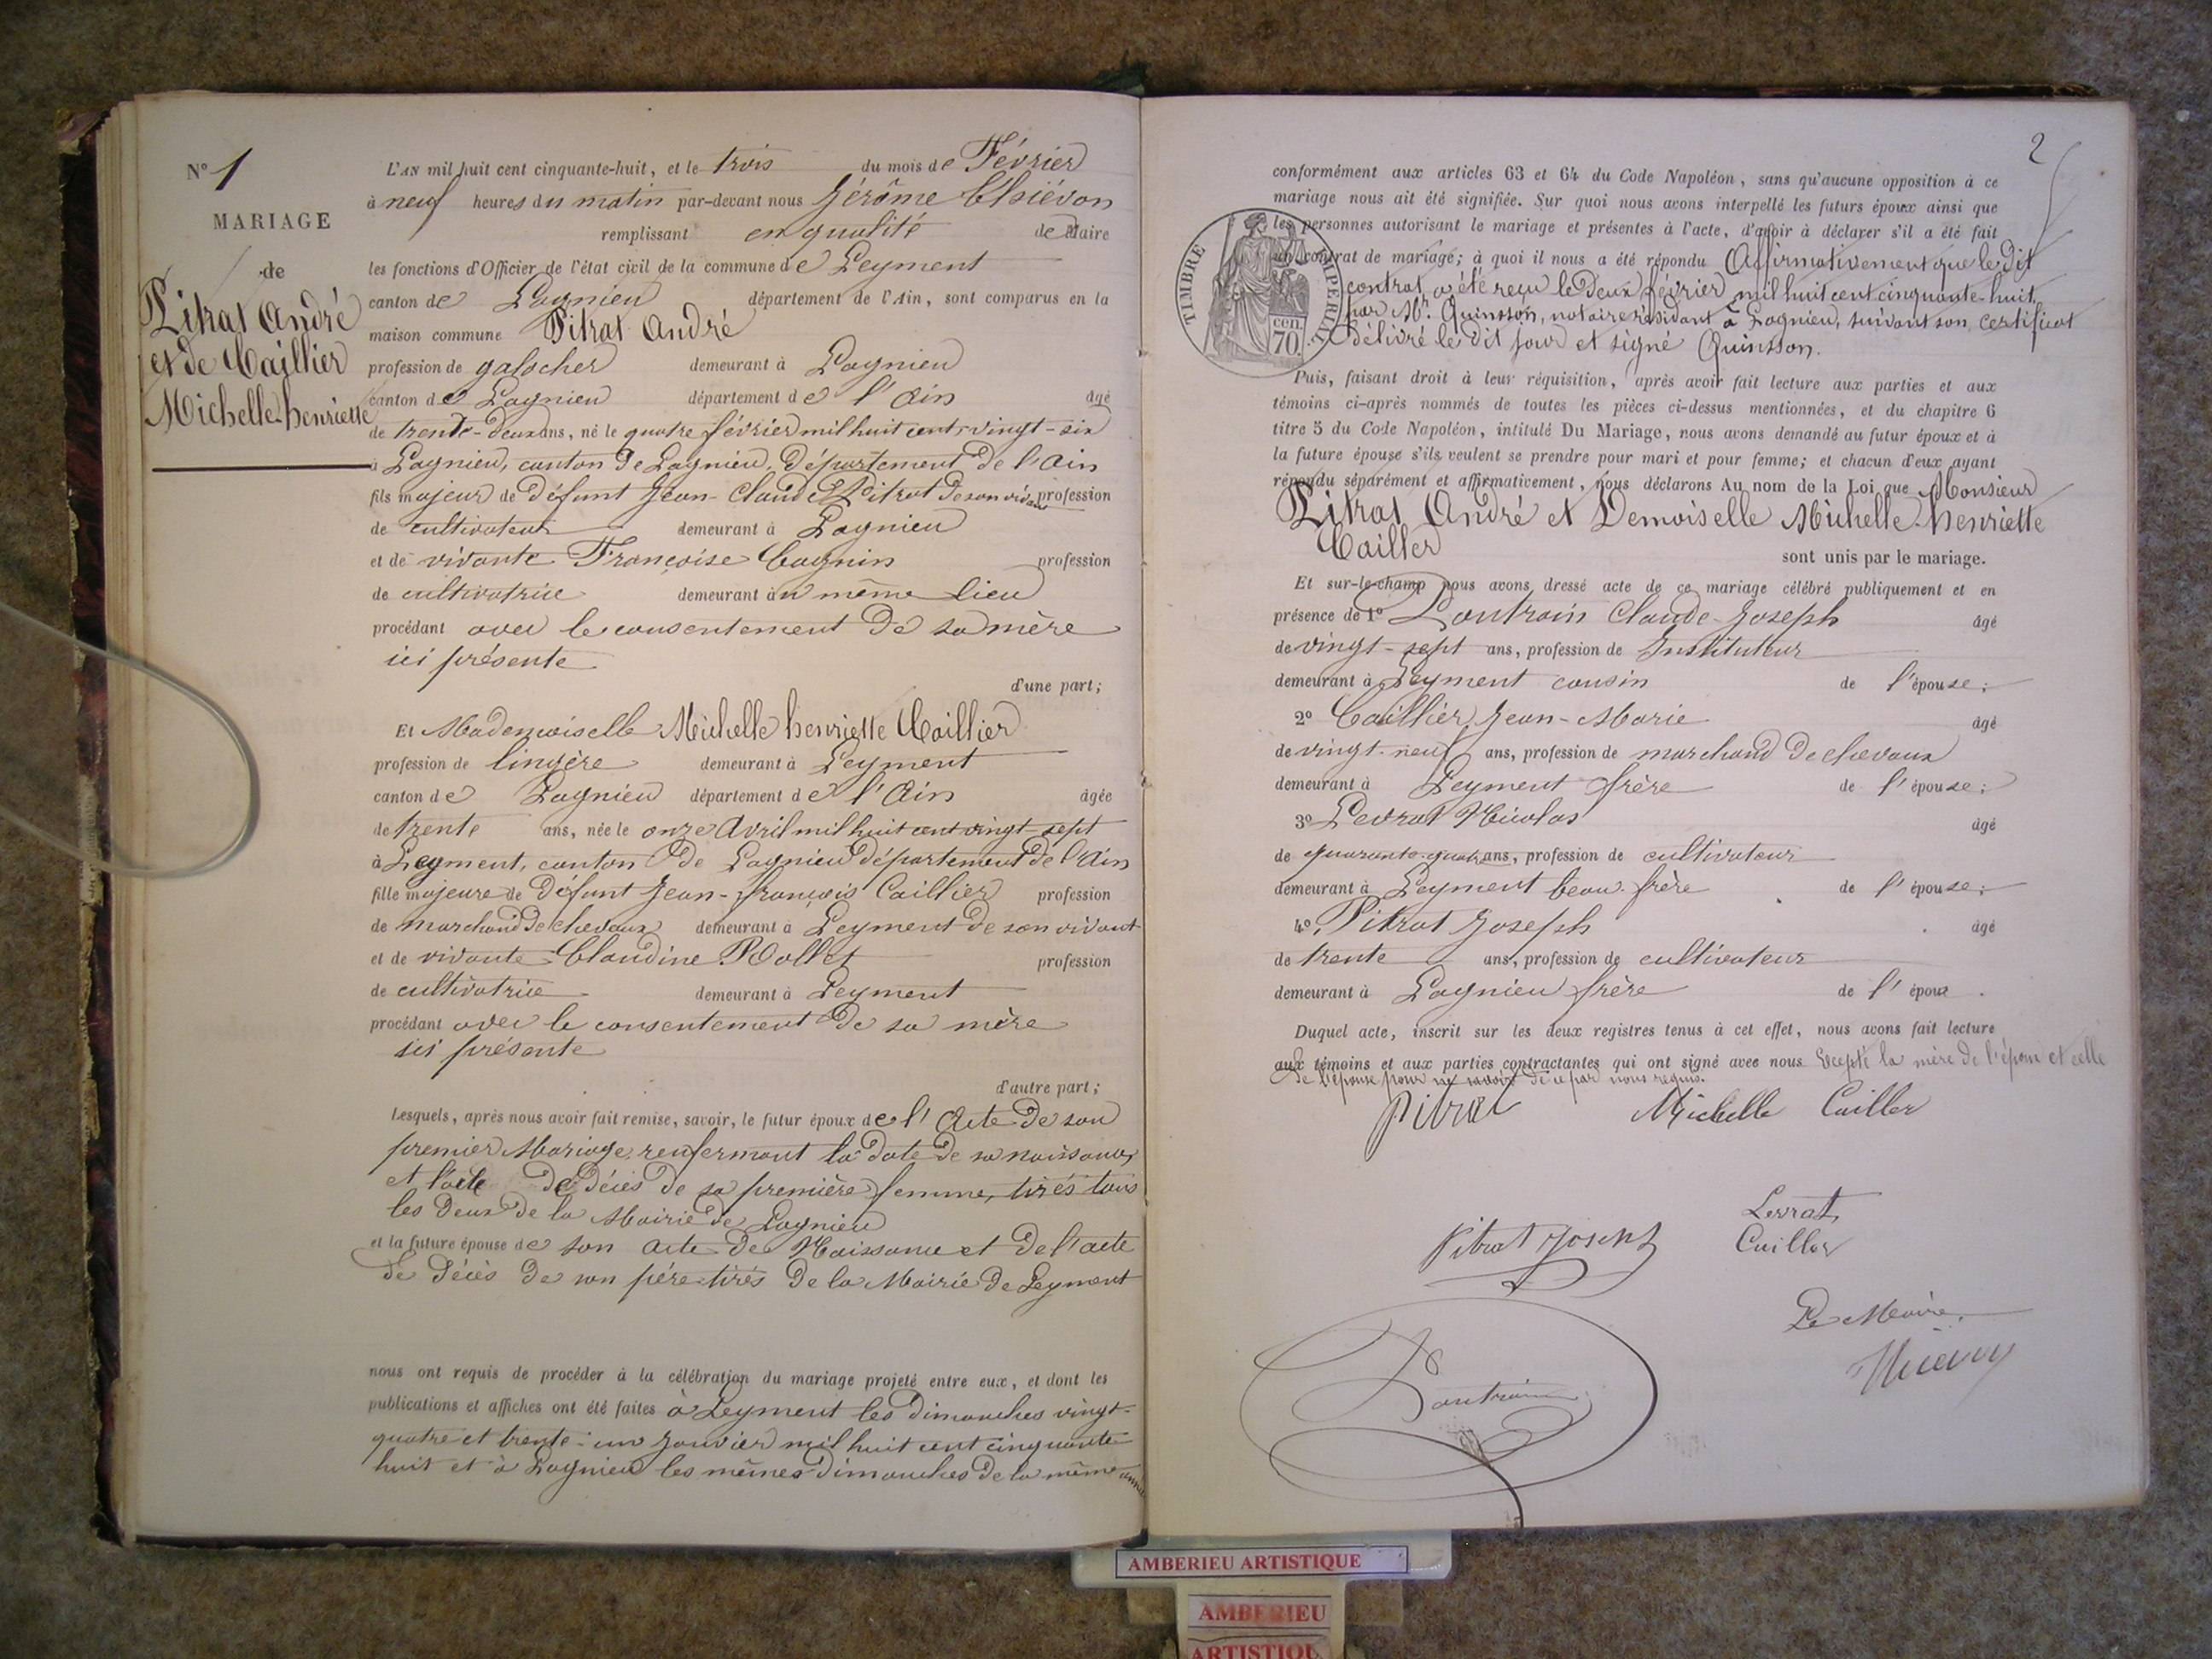 N° 1
MARIAGE
de
Pitrat André
et de Caillier
Michelle-henriette
L'AN mil huit cent cinquante-huit, et le trois du mois de Février
à neuf heures du matin par-devant nous Jérôme Thiévon
remplissant en qualité de Maire
les fonctions d'Officier de l'état civil de la commune de Leyment
canton de Lagnieu département de l'Ain, sont comparus en la
maison commune Pitrat André
profession de galocher demeurant à Lagnieu
canton de Lagnieu département de l'Ain âgé
de trente-deux ans, né le quatre février mil huit cent vingt-six
à Lagnieu, canton de Lagnieu, département de l'Ain
fils majeur de défunt Jean-Claude Pitrat de son vivant profession
de cultivateur demeurant à Lagnieu
et de vivante Françoise Cagnin profession
de cultivatrice demeurant au même lieu
procédant avec le consentement de sa mère
ici présente
d'une part;
Et Mademoiselle Michelle henriette Caillier
profession de lingère demeurant à Leyment
canton de Lagnieu département de l'Ain âgée
de trente ans, née le onze Avril mil huit cent vingt-sept
à Leyment, canton de Lagnieu département de l'Ain
fille majeure de défunt Jean-françois Caillier profession
de marchand de chevaux demeurant à Leyment de son vivant
et de vivante Claudine Rollet profession
de cultivatrice demeurant à Leyment
procédant avec le consentement de sa mère
ici présente
d'autre part;
Lesquels, après nous avoir fait remise, savoir, le futur époux de l'Acte de son
premier Mariage renfermant la date de sa naissance,
et l'acte de décès de sa première femme, tirés tous
les deux de la Mairie de Lagnieu
et la future épouse de son acte de Naissance et de l'acte
de décès de son père tirés de la Mairie de Leyment
nous ont requis de procéder à la célébration du mariage projeté entre eux, et dont les
publications et affiches ont été faites à Leyment les dimanches vingt-
quatre et trente-un janvier mil huit cent cinquante
huit et à Lagnieu les mêmes dimanches de la même année
2
conformément aux articles 63 et 64 du Code Napoléon, sans qu'aucune opposition à ce
mariage nous ait été signifiée. Sur quoi nous avons interpellé les futurs époux ainsi que
les personnes autorisant le mariage et présentes à l'acte, d'avoir à déclarer s'il a été fait
un contrat de mariage; à quoi il nous a été répondu Affirmativement que le dit
contrat a été reçu le deux février mil huit cent cinquante-huit
par Mr. Quinsson, notaire résidant à Lagnieu, suivant son certificat
délivré le dit jour et signé Quinsson.
TIMBRE IMPERIAL
70 cen.
Puis, faisant droit à leur réquisition, après avoir fait lecture aux parties et aux
témoins ci-après nommés de toutes les pièces ci-dessus mentionnées, et du chapitre 6
titre 5 du Code Napoléon, intitulé Du Mariage, nous avons demandé au futur époux et à
la future épouse s'ils veulent se prendre pour mari et pour femme; et chacun d'eux ayant
répondu séparément et affirmativement, nous déclarons Au nom de la Loi que Monsieur
Pitrat André et Demoiselle Michelle-henriette
Cailler
sont unis par le mariage.
Et sur-le-champ nous avons dressé acte de ce mariage célébré publiquement et en
présence de 1° Loutrain Claude-Joseph âgé
de vingt-sept ans, profession de Instituteur
demeurant à Leyment cousin de l'épouse;
2° Caillier Jean-Marie âgé
de vingt-neuf ans, profession de marchand de chevaux
demeurant à Leyment frère de l'épouse;
3° Levrat Nicolas âgé
de quarante-quatre ans, profession de cultivateur
demeurant à Leyment beau-frère de l'épouse;
4° Pitrat Joseph âgé
de trente ans, profession de cultivateur
demeurant à Lagnieu frère de l'époux.
Duquel acte, inscrit sur les deux registres tenus à cet effet, nous avons fait lecture
aux témoins et aux parties contractantes qui ont signé avec nous Excepté la mère de l'époux et celle
de l'épouse pour ne savoir de ce par nous requis.
Pitrat Michelle Cailler
Levrat
Pitrat Joseph Cailler
Le Maire,
Loutrain
AMBERIEU ARTISTIQUE
AMBERIEU
ARTISTIQU